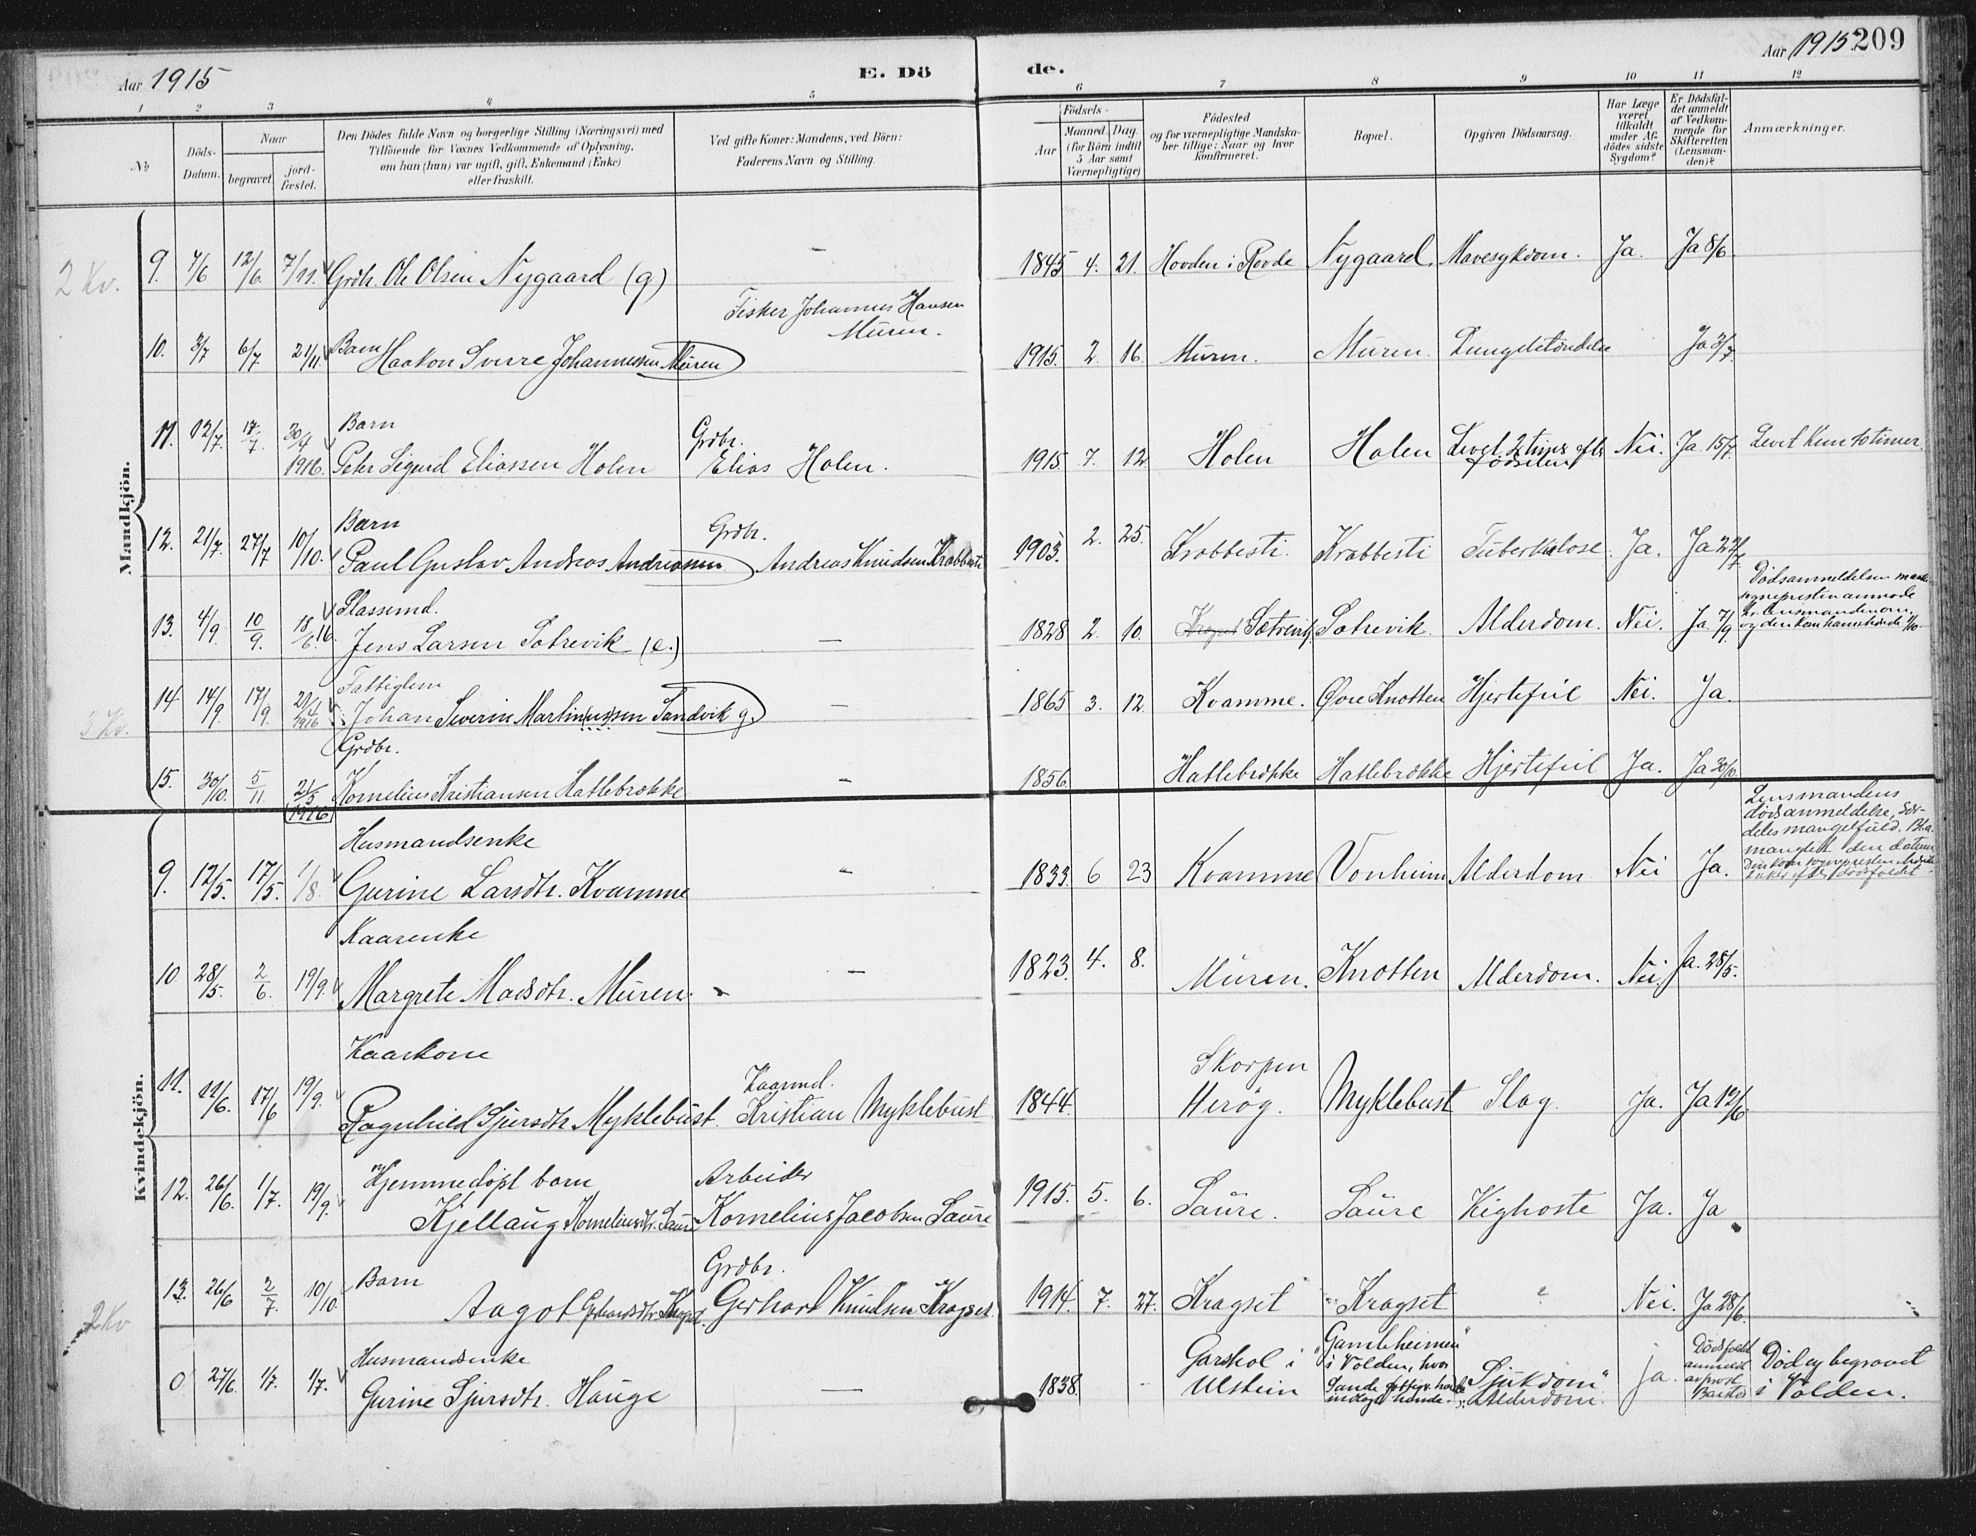 Aar 1915
E. Dö
de.
Aar 1915
209
1 2 3 4 5 6 7 8 9 10 11 12
No
Döds-
Datum.
Naar
begravet.
jord-
fæstet.
Den Dödes fulde Navn og borgerlige Stilling (Næringsvei) med
Tilföiende for Voxnes Vedkommende af Oplysning,
om han (hun) var ugift, gift, Enkemand (Enke)
eller fraskilt.
Ved gifte Koner: Mandens, ved Börn:
Faderens Navn og Stilling.
Födsels-
Aar
Maaned. Dag.
(for Börn indtil
5 Aar samt
Værnepligtige)
Födested
og for værnepligtige Mandska-
ber tillige: Naar og hvor
konfirmeret.
Bopæl.
Opgiven Dödsaarsag.
Har Læge
været
tilkaldt
under Af-
dödes sidste
Sygdom?
Er Dödsfal-
det anmeldt
af Vedkom-
mende for
Skifteretten
(Lensman-
den)?
Anmærkninger.
Mandkjön.
2 Kv.
9. 7/6 12/6. 7/11 Grdbr. Ole Olsen Nygaard (g) — 1845 4. 21. Hovden i Rovde Nygaard. Mavesykdom. Ja. Ja 8/6.
Fisker Johannes Hansen
Muren.
10. 3/7 6/7 21/11 Barn
Haakon Sverre Johannessen Muren 1915. 2. 16. Muren. Muren. Lungebetændelse Ja 3/7.
11. 12/7. 17/7. 30/4 1916. Barn
Peter Sigurd Eliassen Holen
Grdbr.
Elias Holen. 1915 7. 12 Holen Holen Levet 2 timer eft. fødselen Nei. Ja 15/7 Levet kun to timer.
12. 21/7. 27/7 10/10. Barn
Paul Gustav Andreas Andreassen
Grdbr.
Andreas Knudsen Krabbesti 1903. 2. 25. Krabbesti. Krabbesti Tuberkulose. Ja. Ja 22/7
13. 4/9. 10/9. 18/6.16. Plassemd.
Jens Larsen Sætrevik (e.) — 1828 2. 10. Sætrevik. Alderdom. Nei. Ja 7/9.
Dødsanmeldelsen
14 14/9 17/9. 29/4 1916 Fattiglem
Johan Severin Martinussen Sandvik g. — 1865 3. 12. Kvamme. Øvre Knotten Hjertefeil Nei. Ja.
3 Kv.
15. 30/10. 5/11. 21/5 1916 Grdbr.
Kornelius Kristiansen Hatlebrække — 1856. Hatlebrække Hatlebrække Hjertefeil Ja. Ja 30/10.
Kvindekjön.
9. 12/5. 17/5. 1/8. Husmandsenke
Gurine Larsdtr. Kvamme — 1833. 6 23 Kvamme Vonheim Alderdom Nei Ja.
Lensmandens
dødsanmeldelse, sær-
deles mangelfuld. Bl.a.
manglet den datum
10 28/5. 2/6. 19/9. Kaarenke
Margrete Madsdtr. Muren. — 1823. 4. 8. Muren. Knotten Alderdom. Nei. Ja. 28/5.
11. 11/6. 17/6 19/9. Kaarkone
Ragnhild Sjursdtr. Myklebust.
Kaarmd.
Kristian Myklebust 1844. Skorpen
Herøy. Myklebust Slag. Ja. Ja 12/6
12. 26/6. 1/7. 19/9. Hjemmedøpt barn
Kjellaug Korneliusdtr. Saure
Arbeider
Kornelius Jacobsen Saure 1915. 5. 6. Saure. Saure Kighoste Ja. Ja
13. 26/6 2/7. 10/10. Barn
Aagot Gerhardsdtr. Kragset.
Grdbr.
Gerhard Knudsen Kragset. 1914. 7. 27. Kragset Kragset ? Nei. Ja 28/6.
2 Kv
0. 27/6. 1/7. 1/7. Husmandsenke
Gurine Sjursdtr. Hauge — 1838. - Garshol i
Ulstein
"Gamleheimen"
i Volden, hvor
Sande
"Sjukdom"
Alderdom. ja. Dødsfaldet
anmeldt
av prost
Barstad Død og begravet
i Volden.